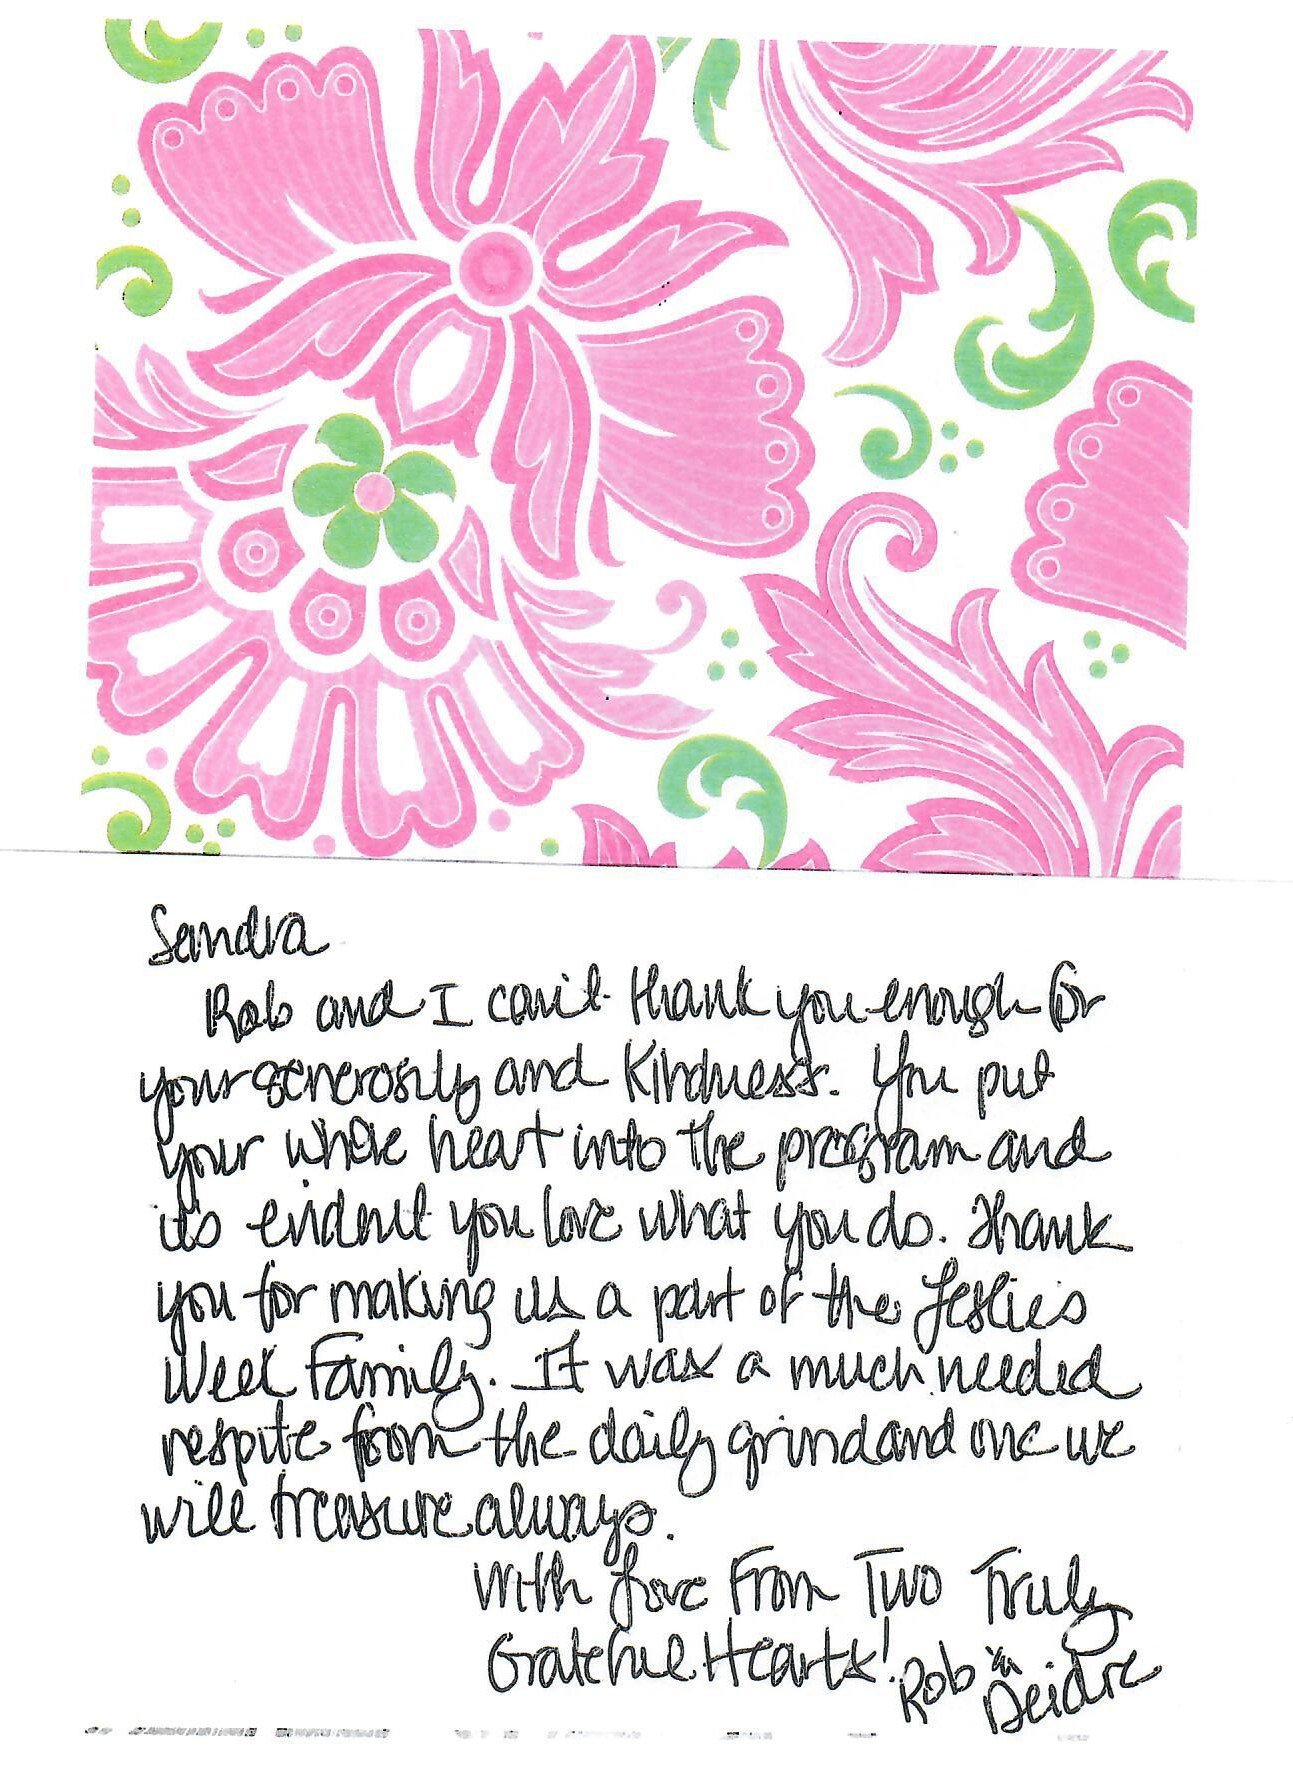 Sandra
Rob and I can't thank you enough for
your generosity and kindness. You put
your whole heart into the program and
its evident you love what you do. Thank
you for making us a part of the Leslie's
Week Family. It was a much needed
respite from the daily grind and one we
will treasure always.
With Love From Two Truly
Grateful Hearts! Rob &
Deidre